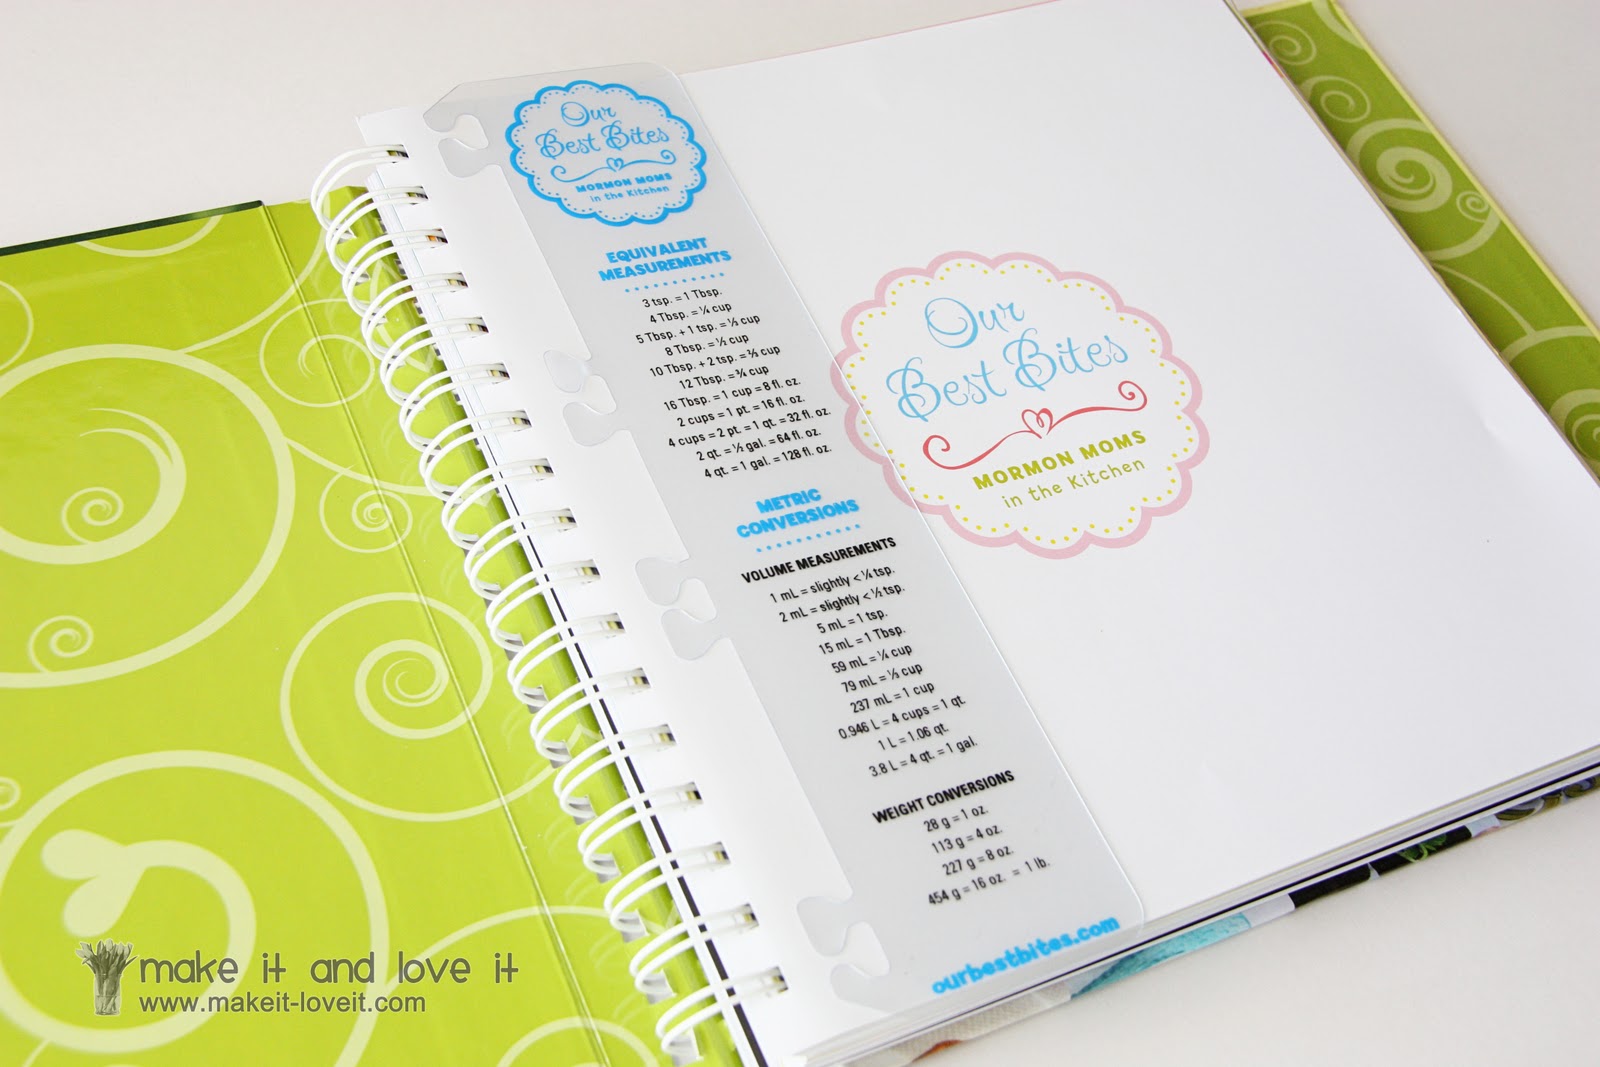 Our
Best Bites
MORMON MOMS
in the Kitchen
EQUIVALENT
MEASUREMENTS
3 tsp. = 1 Tbsp.
4 Tbsp. = ¼ cup
5 Tbsp. + 1 tsp. = ⅓ cup
8 Tbsp. = ½ cup
10 Tbsp. + 2 tsp. = ⅔ cup
12 Tbsp. = ¾ cup
16 Tbsp. = 1 cup = 8 fl. oz.
2 cups = 1 pt. = 16 fl. oz.
4 cups = 2 pt. = 1 qt. = 32 fl. oz.
2 qt. = ½ gal. = 64 fl. oz.
4 qt. = 1 gal. = 128 fl. oz.
METRIC
CONVERSIONS
VOLUME MEASUREMENTS
1 mL = slightly < ¼ tsp.
2 mL = slightly < ½ tsp.
5 mL = 1 tsp.
15 mL = 1 Tbsp.
59 mL = ¼ cup
79 mL = ⅓ cup
237 mL = 1 cup
0.946 L = 4 cups = 1 qt.
1 L = 1.06 qt.
3.8 L = 4 qt. = 1 gal.
WEIGHT CONVERSIONS
28 g = 1 oz.
113 g = 4 oz.
227 g = 8 oz.
454 g = 16 oz. = 1 lb.
ourbestbites.com
Our
Best Bites
MORMON MOMS
in the Kitchen
make it and love it
www.makeit-loveit.com